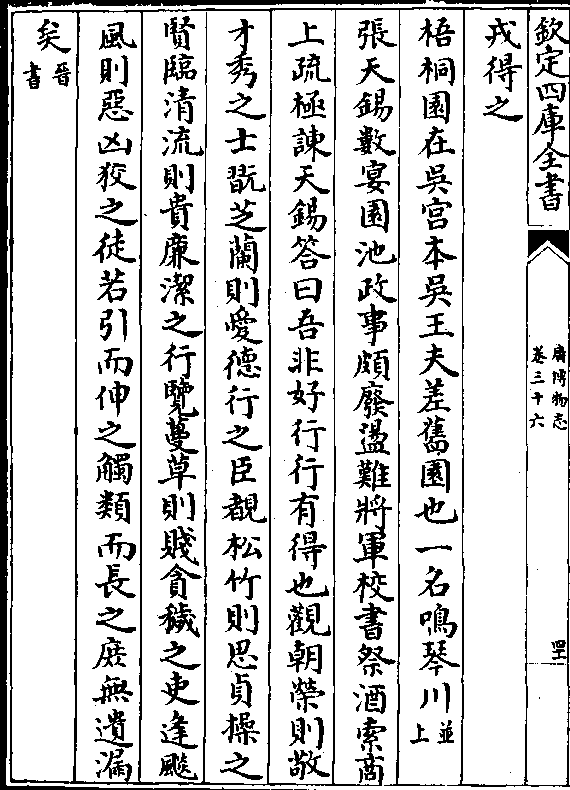 欽定四庫全書
廣博物志
卷三十六
四十
戎得之
梧桐園在吳宮本吳王夫差舊園也一名鳴琴川並上
張天錫數宴園池政事頗廢盪難將軍校書祭酒索商
上疏極諫天錫答曰吾非好行行有得也觀朝榮則敬
才秀之士翫芝蘭則愛德行之臣覩松竹則思貞操之
賢臨清流則貴廉潔之行覽蔓草則賤貪穢之吏逢飈
風則惡凶狡之徒若引而伸之觸類而長之庶無遺漏
矣晉書